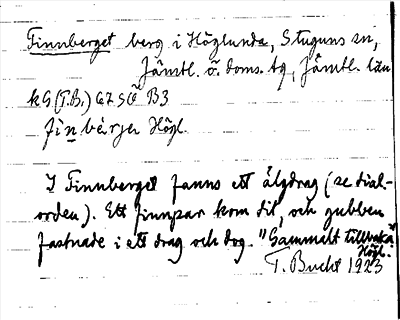 Finnberget berg i Höglunda, Stuguns sn,
Jämtl. ö. doms. tg, Jämtl. län
kG (T.B.) 67 SÖ B3
finbérjer Högl.
I Finnberget fanns ett älgdrag (se dial-
orden). Ett finnpar kom dit, och gubben
fastnade i ett drag och dog. "Gammalt tillbaka"
Högl.
T. Bucht 1923